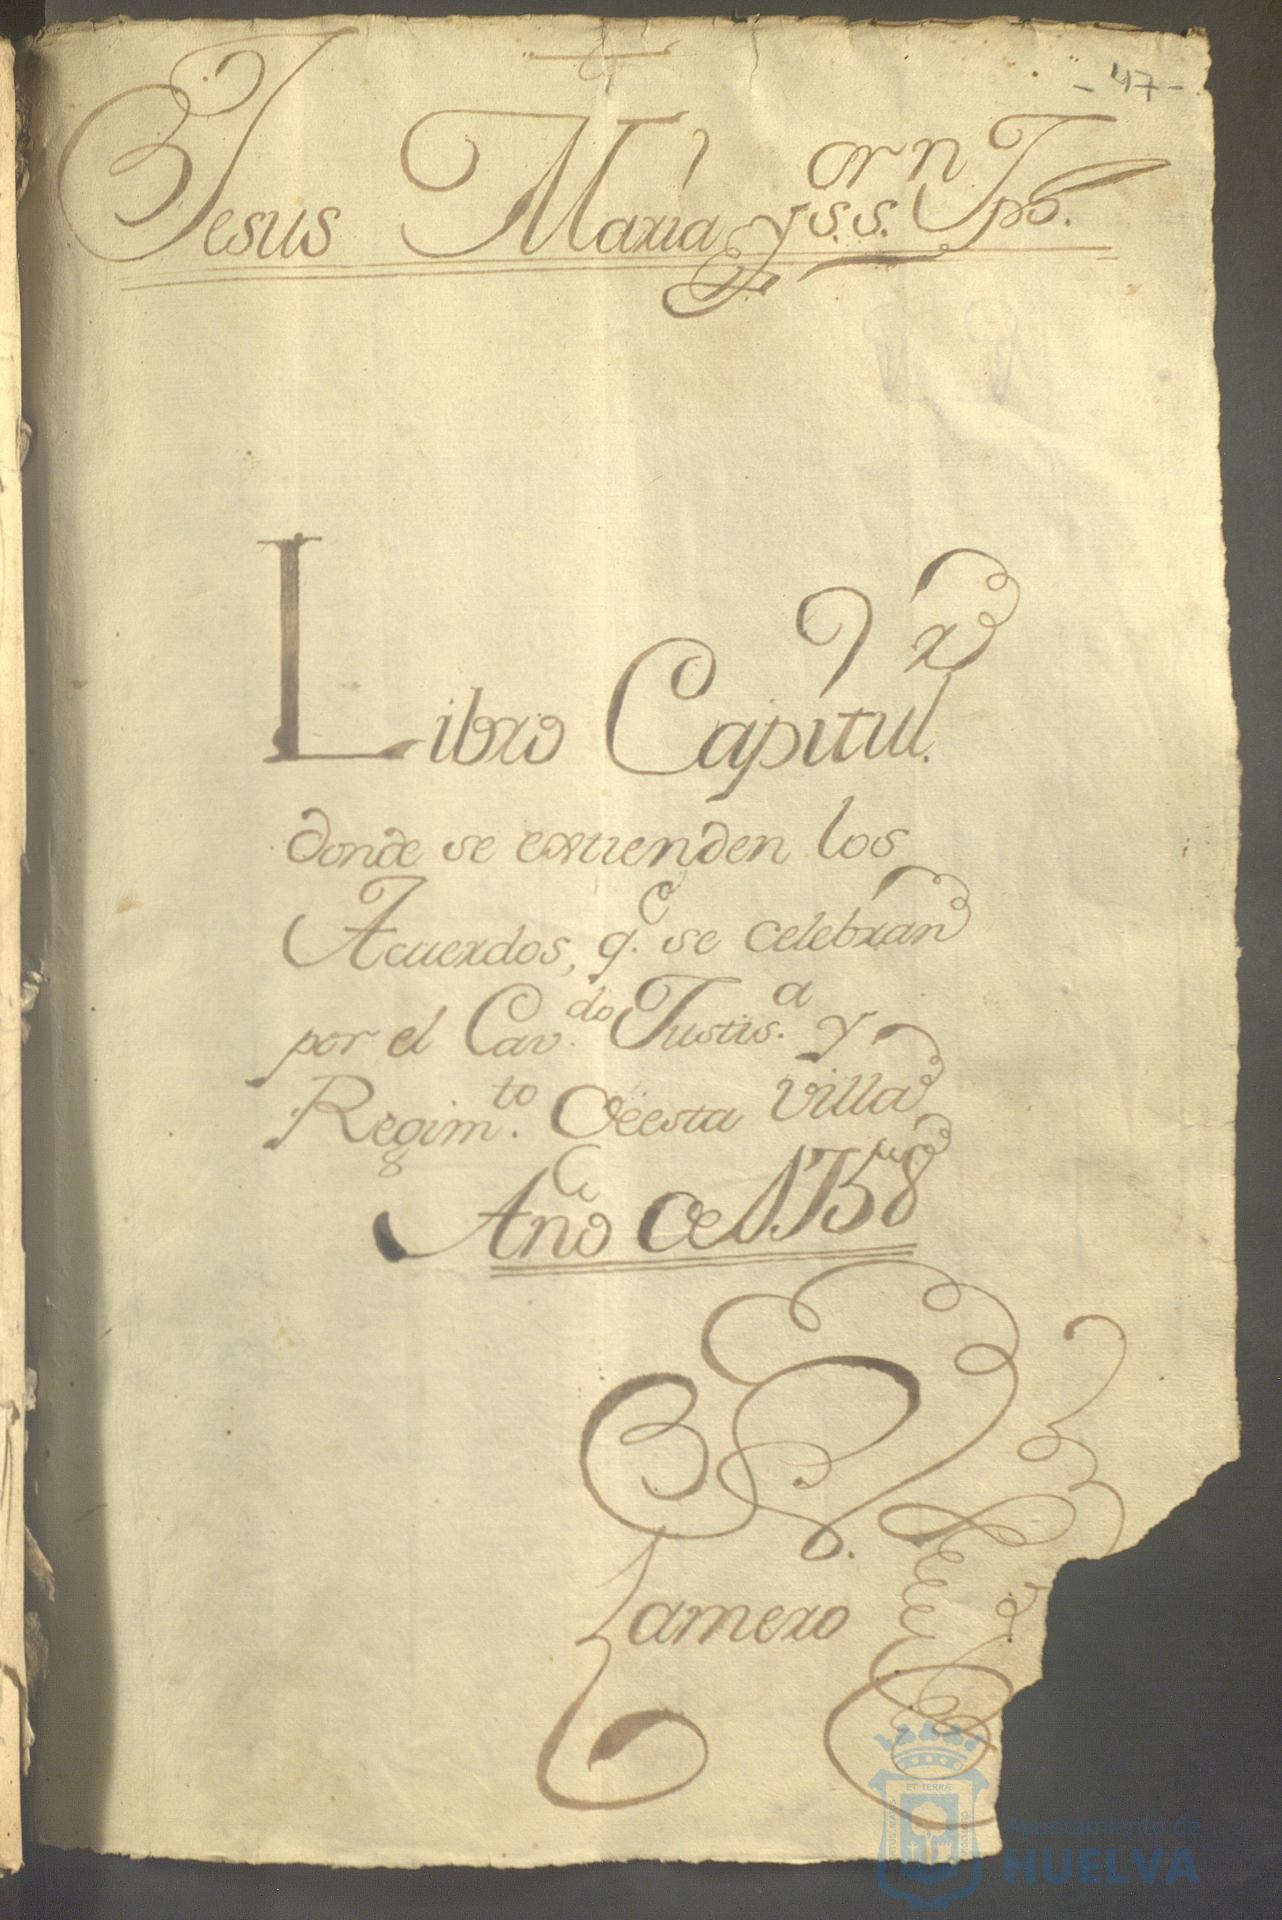 - 47 -
Jesus Maria, y S.or S.n Jpħ.
Libro Capitul.r
donde se extienden los
Acuerdos, q.e se celebran
por el Cav.do Justis.a y
Regim.to de esta Villa
Año de 1758
Lamero
ET TERRÆ
Ayuntamiento de
HUELVA